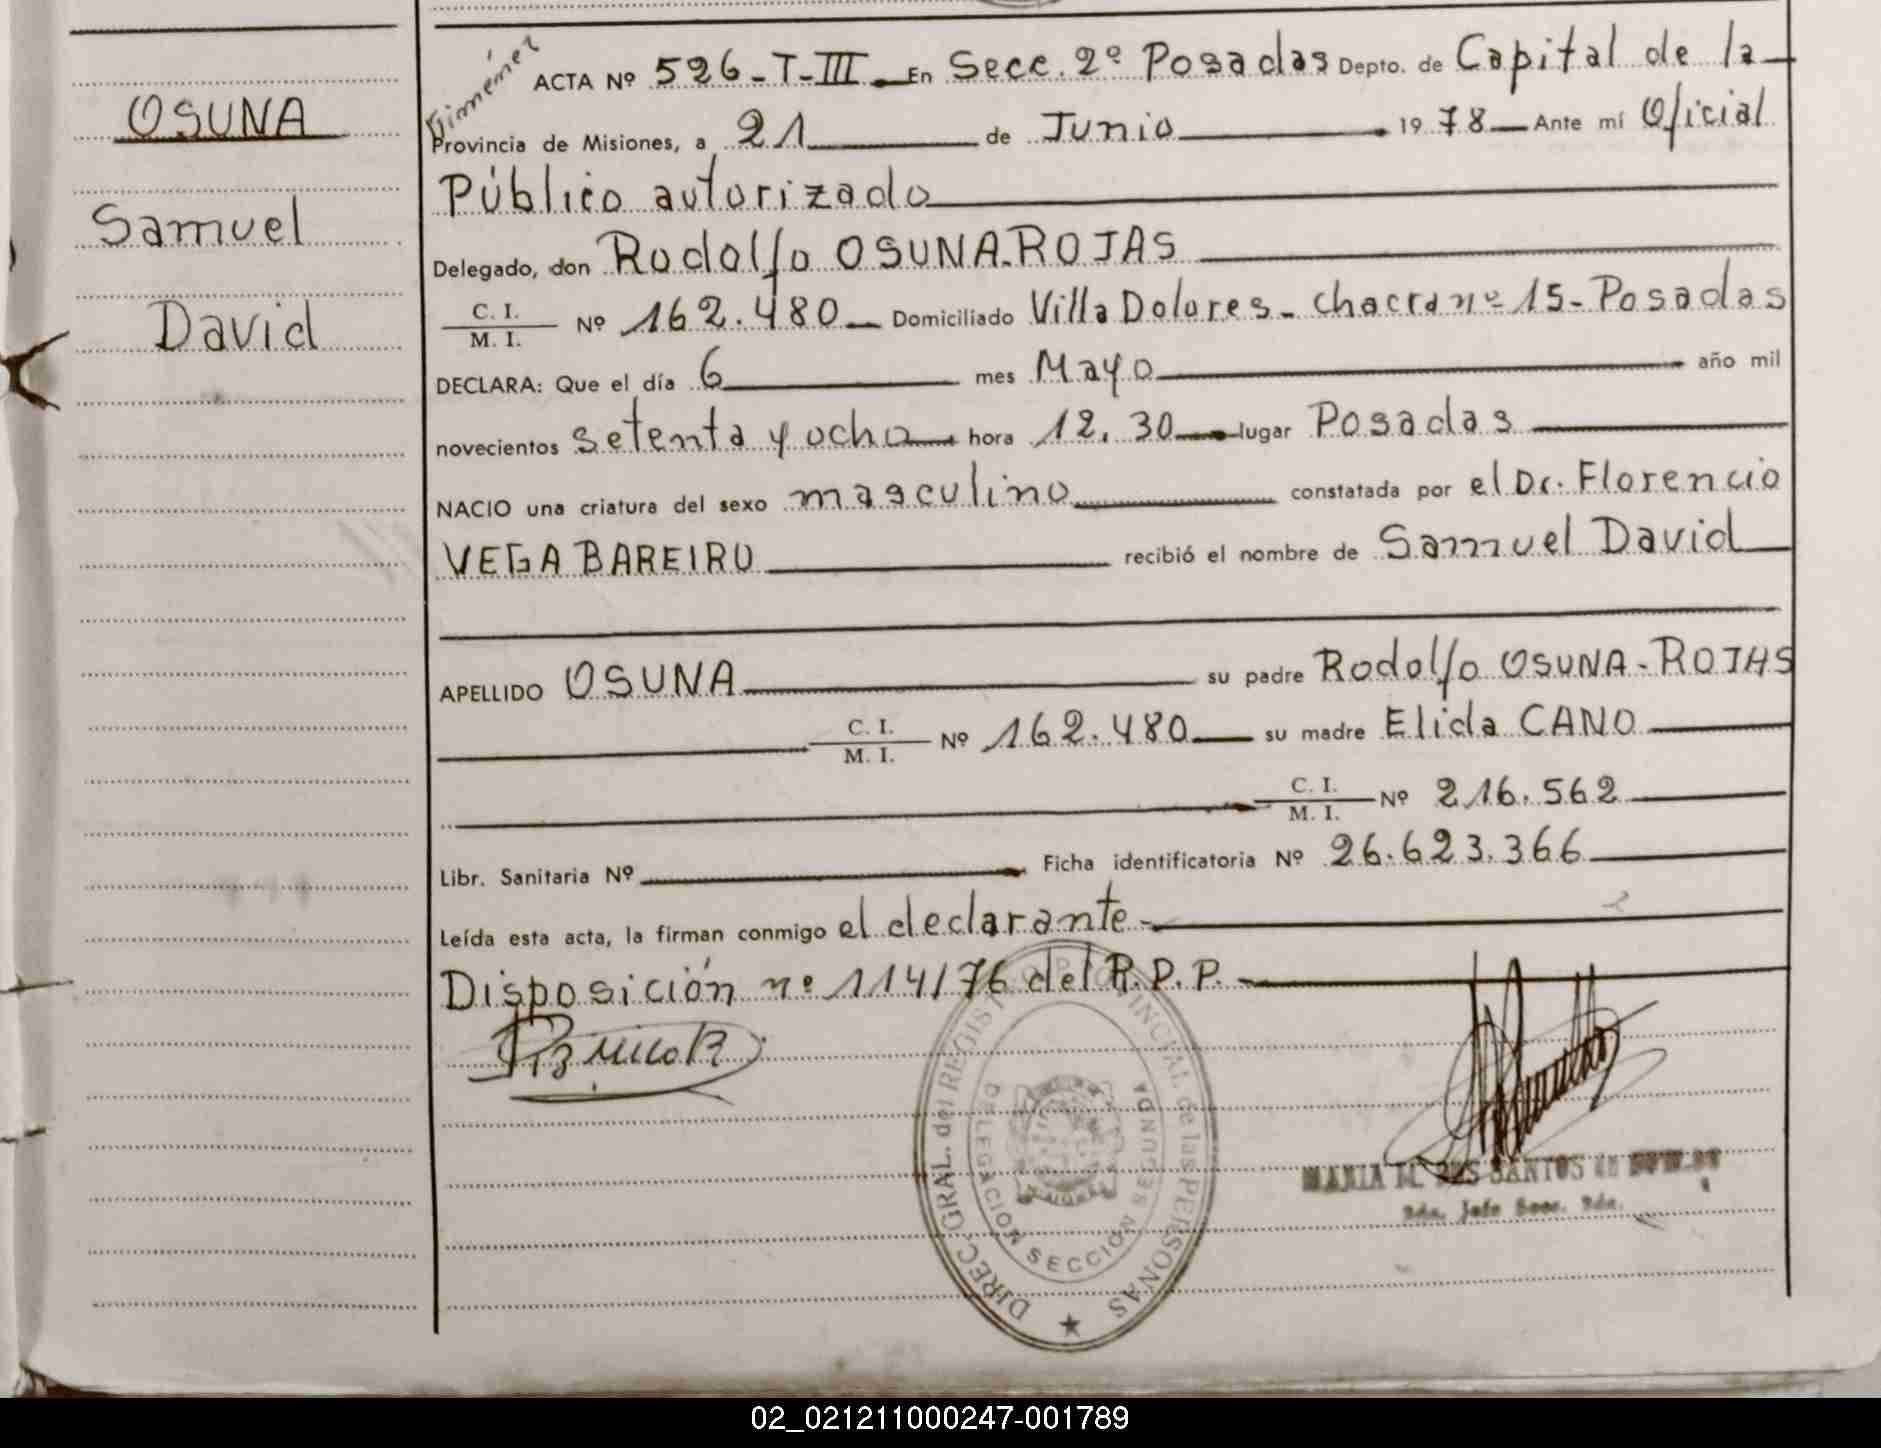 OSUNA
Samuel
David
Giménez
ACTA Nº 526-T-III. En Secc. 2º Posadas Depto. de Capital de la
Provincia de Misiones, a 21 de Junio 1978 Ante mí Oficial
Público autorizado
Delegado, don Rodolfo OSUNA-ROJAS
C. I.
M. I. Nº 162.480 Domiciliado Villa Dolores - chacra nº 15 - Posadas
DECLARA: Que el día 6 mes Mayo año mil
novecientos setenta y ocho hora 12.30 lugar Posadas
NACIO una criatura del sexo masculino constatada por el Dr. Florencio
VEGA BAREIRO recibió el nombre de Samuel David
APELLIDO OSUNA su padre Rodolfo OSUNA-ROJAS
C. I.
M. I. Nº 162.480 su madre Elida CANO
C. I.
M. I. Nº 216.562
Libr. Sanitaria Nº Ficha identificatoria Nº 26.623.366
Leída esta acta, la firman conmigo el declarante.-
Disposición nº 114/76 del R.P.P.-
DIREC. GRAL. del REGISTRO PROVINCIAL de las PERSONAS
DELEGACION SECCION SEGUNDA
MISIONES
MARIA DOS SANTOS de
Jefe Secc. 2da.
02_021211000247-001789